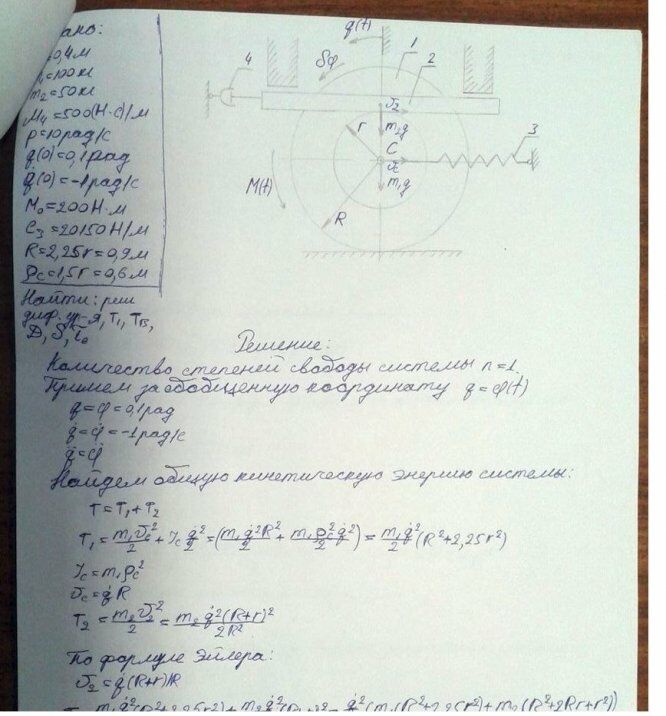 ано:
0,4м
=100кг
m₂=50кг
μ₄=500(Н·с)/м
p=10рад/с
q(0)=0,1рад
q̇(0)=-1рад/с
M₀=200Н·м
C₃=20150Н/м
R=2,25r=0,9м
ρc=1,5r=0,6м
Найти: реш
диф. ур-я, T₁,
D, δ,
q(t)
δφ
1
2
4
v₂
m₂g
r
C
3
vc
m₁g
M(t)
R
Решение:
Количество степеней свободы системы n=1
Примем за обобщенную координату q=φ(t)
q=φ=0,1рад
q̇=φ̇=-1рад/с
q̈=φ̈
Найдем общую кинетическую энергию системы:
T=T₁+T₂
T₁=m₁vc²/2+Jc q̇²/2=(m₁q̇²R²/2+m₁ρc²q̇²/2)=m₁q̇²/2(R²+2,25r²)
Jc=m₁ρc²
vc=q̇R
T₂=m₂v₂²/2=m₂q̇²(R+r)²/2R²
По формуле Эйлера:
v₂=q̇(R+r)R